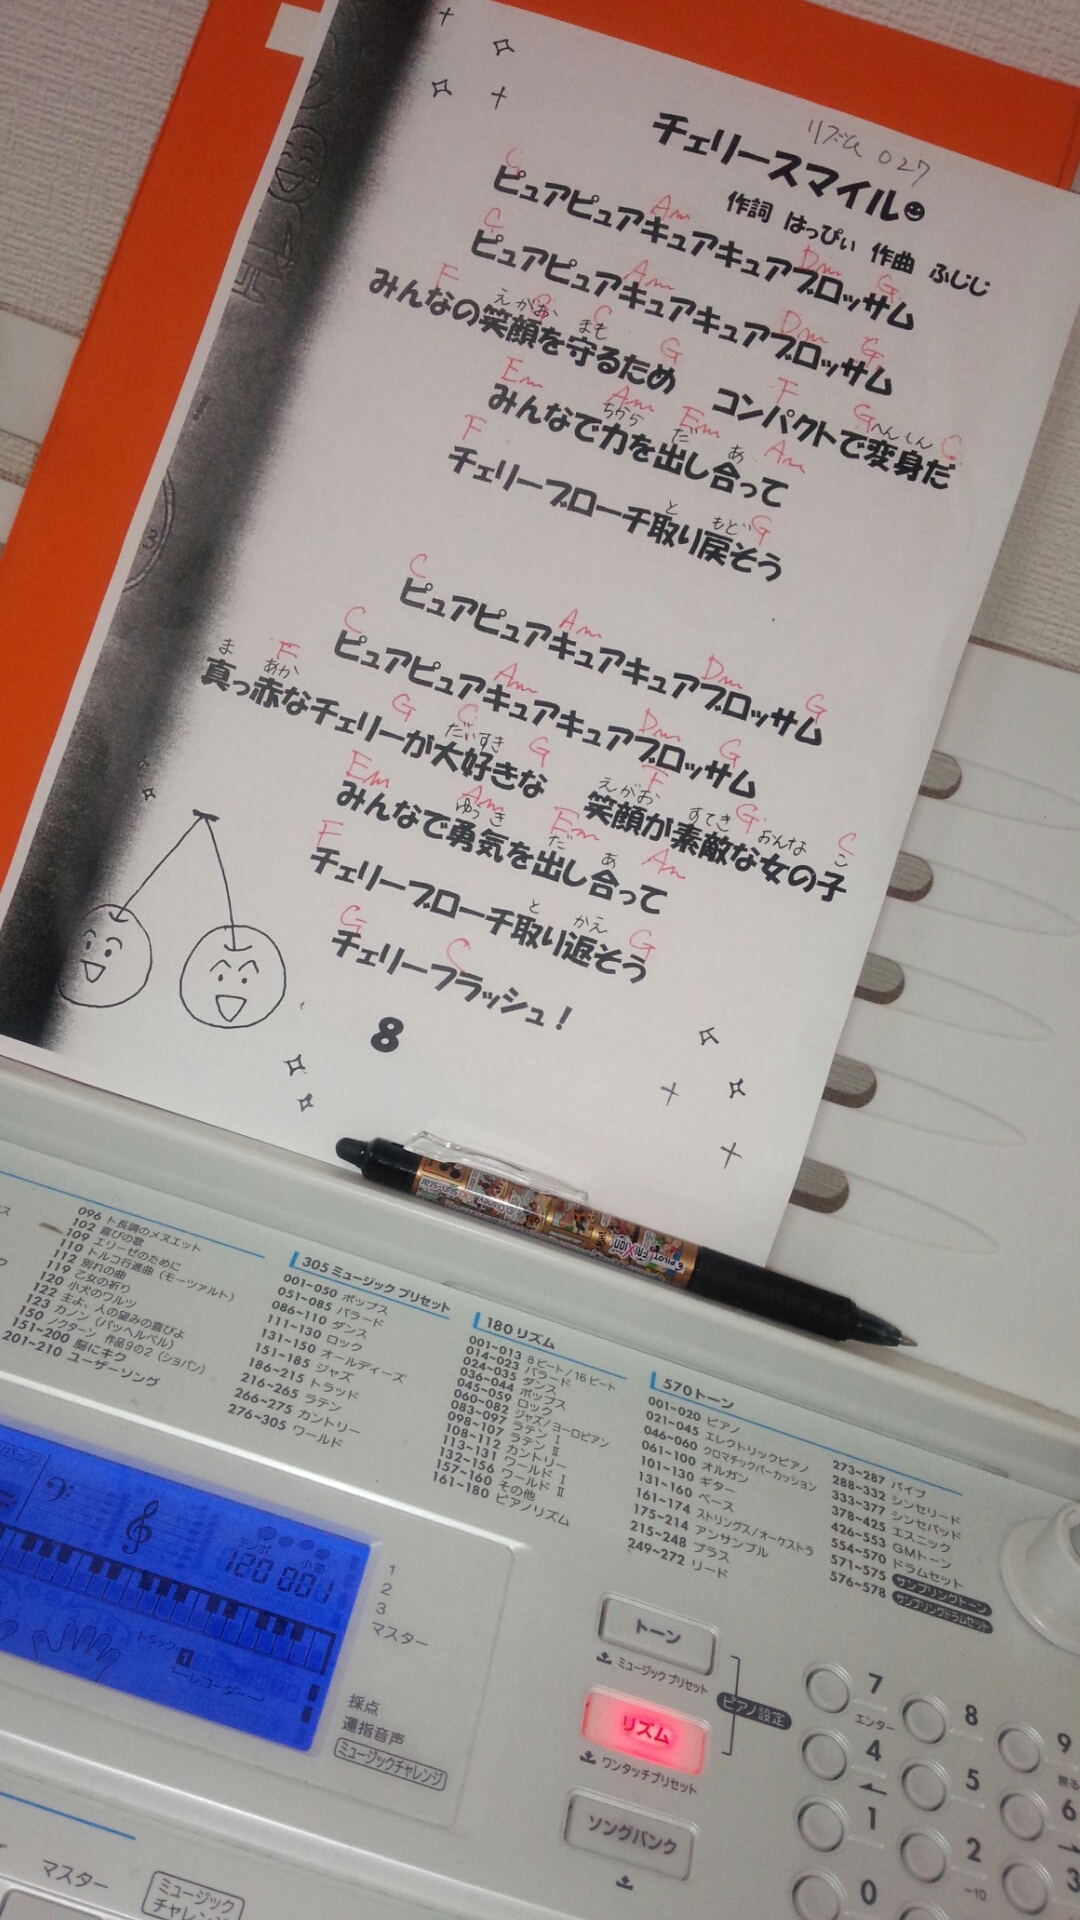 リズム 027
チェリースマイル
作詞 はっぴぃ 作曲 ふじじ
C Am Dm G
ピュアピュアキュアキュアブロッサム
C Am Dm G
ピュアピュアキュアキュアブロッサム
F G C G F G C
えがお まも へんしん
みんなの笑顔を守るため コンパクトで変身だ
Em Am Em Am
ちから だ あ
みんなで力を出し合って
F G
と もど
チェリーブローチ取り戻そう
C Am Dm G
ピュアピュアキュアキュアブロッサム
C Am Dm G
ピュアピュアキュアキュアブロッサム
F G C G F G C
ま あか だいすき えがお すてき おんな こ
真っ赤なチェリーが大好きな 笑顔が素敵な女の子
Em Am Em Am
ゆうき だ あ
みんなで勇気を出し合って
F G
と かえ
チェリーブローチ取り返そう
G C
チェリーフラッシュ!
8
PILOT FRIXION
Disney
sun-star
096 ト長調のメヌエット
102 喜びの歌
109 エリーゼのために
110 トルコ行進曲(モーツァルト)
112 別れの曲
119 乙女の祈り
120 小犬のワルツ
122 主よ、人の望みの喜びよ
123 カノン(パッヘルベル)
150 ノクターン 作品9の2(ショパン)
151~200 脳にキク
201~210 ユーザーソング
305 ミュージック プリセット
001~050 ポップス
051~085 バラード
086~110 ダンス
111~130 ロック
131~150 オールディーズ
151~185 ジャズ
186~215 トラッド
216~265 ラテン
266~275 カントリー
276~305 ワールド
180 リズム
001~013 8ビート/16ビート
014~023 バラード
024~035 ダンス
036~044 ポップス
045~059 ロック
060~082 ジャズ/ヨーロピアン
083~097 ラテン I
098~107 ラテン II
108~112 カントリー
113~131 ワールド I
132~156 ワールド II
157~160 その他
161~180 ピアノリズム
570 トーン
001~020 ピアノ
021~045 エレクトリックピアノ
046~060 クロマチックパーカッション
061~100 オルガン
101~130 ギター
131~160 ベース
161~174 ストリングス/オーケストラ
175~214 アンサンブル
215~248 ブラス
249~272 リード
273~287 パイプ
288~332 シンセリード
333~377 シンセパッド
378~425 エスニック
426~553 GMトーン
554~570 ドラムセット
571~575 サンプリングトーン
576~578 サンプリングドラムセット
テンポ 小節
120 001
トラック 1
レコーダー
1
2
3
マスター
採点
運指音声
ミュージックチャレンジ
トーン
ミュージック プリセット
リズム
ピアノ設定
ワンタッチプリセット
ソングバンク
7
8
9
エンター
戻る
4
5
6
1
2
3
-10
0
マスター
ミュージック
チャレンジ